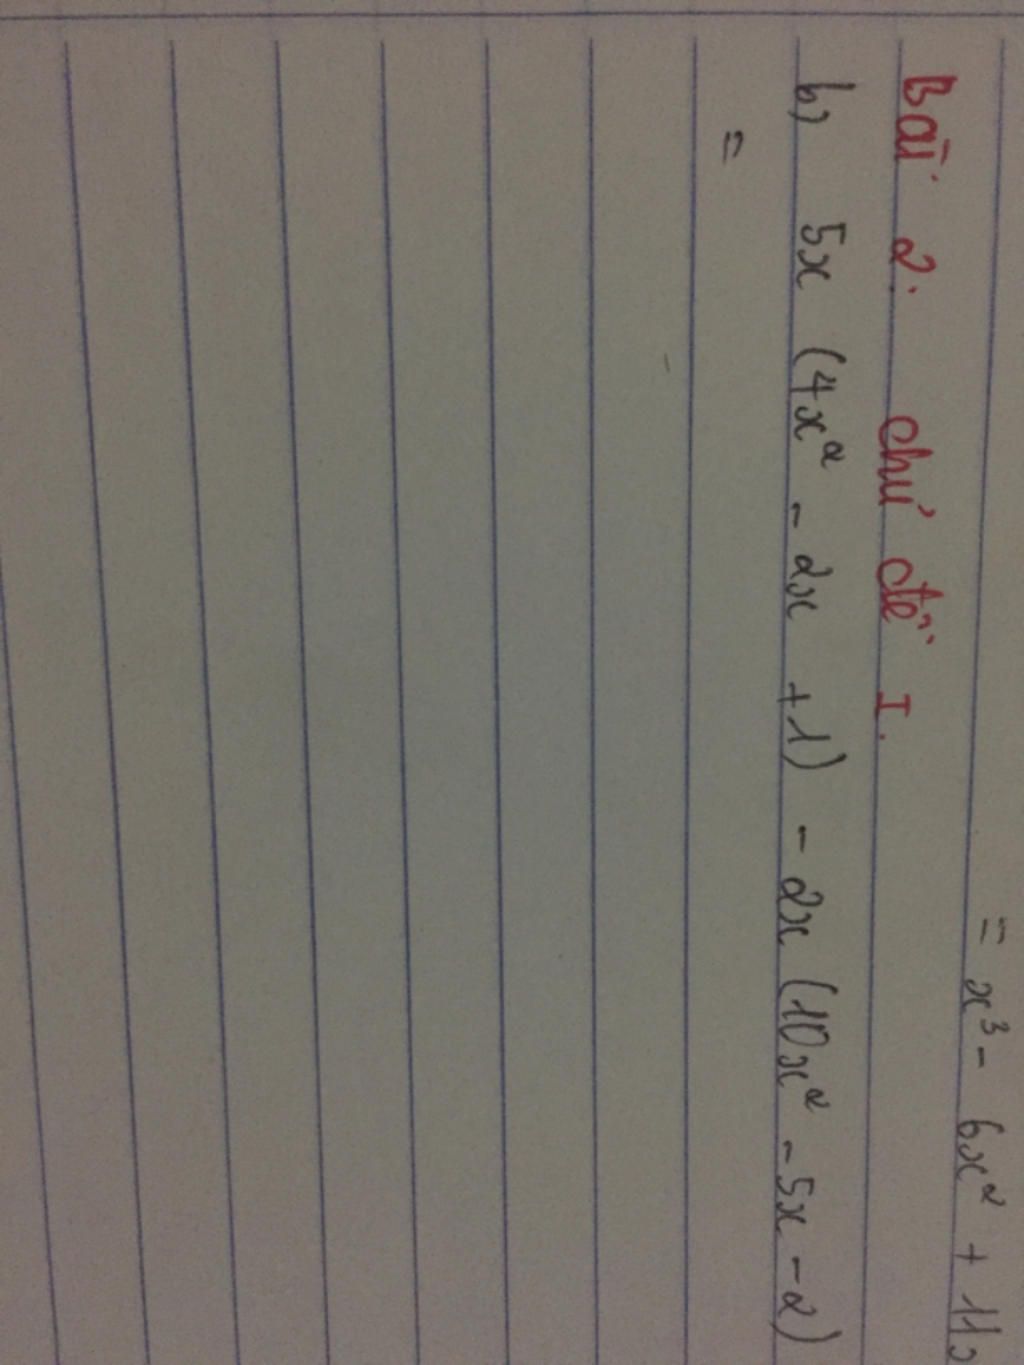 = x³ - 6x² + 11x
Bài 2. chủ đề I.
b) 5x (4x² - 2x + 1) - 2x (10x² - 5x - 2)
=